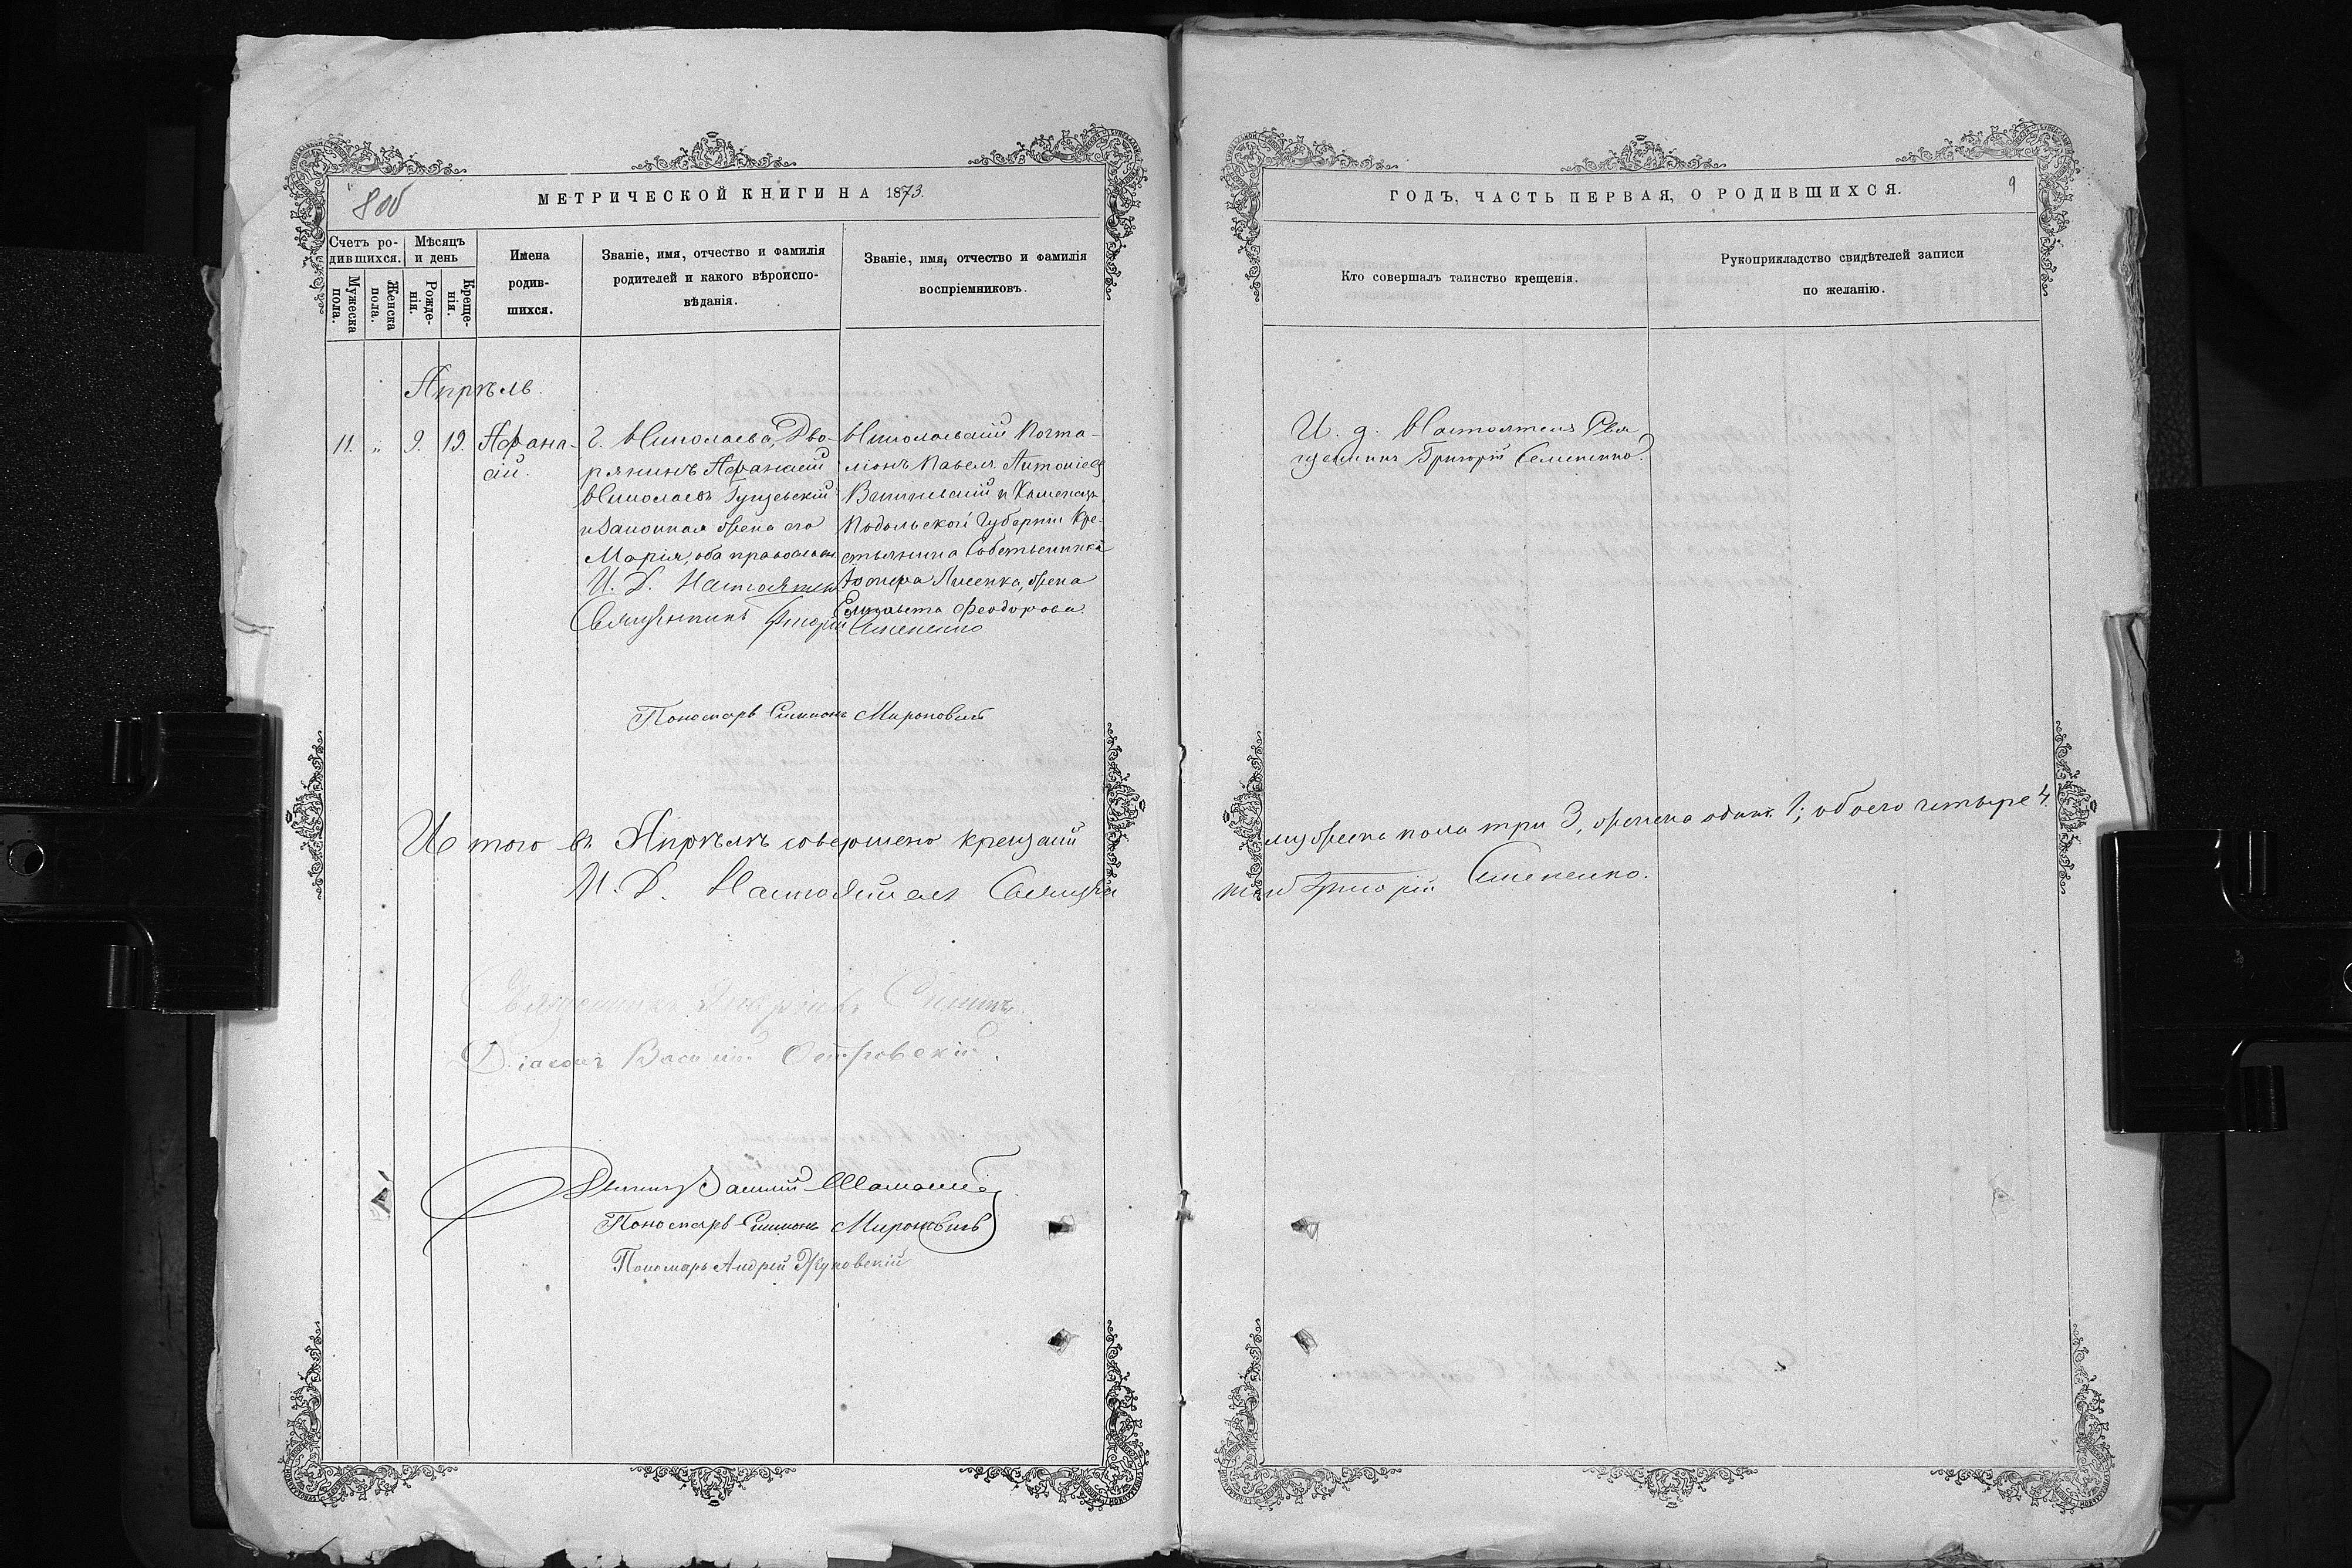 8 об
МЕТРИЧЕСКОЙ КНИГИ НА 1873.
Счетъ ро-
дившихся.
Мѣсяцъ
и день
Мужеска
пола.
Женска
пола.
Рожде-
нія.
Креще-
нія.
Имена
родив-
шихся.
Званіе, имя, отчество и фамилія
родителей и какого вѣроиспо-
вѣданія.
Званіе, имя, отчество и фамилія
воспріемниковъ.
Апрѣль.
11. „ 9. 19.
Афана-
сій.
г. Николаева, Дво-
рянинъ Афанасій
Николаевъ
и законная жена его
Марія, оба православн.
И. Д. Настоятеля
Священникъ Григорій Семененко
Николаевскій Почта-
ліонъ Павелъ Антоніевъ
и Каменецъ
Подольской Губерніи Кре-
стьянина Собственника
Лисенка, жена
Елизавета Феодорова.
Пономарь Симеонъ Мироновичъ
Итого въ Апрѣлѣ совершено крещеній
И. Д. Настоятеля Священ
Діаконъ Василій Островскій.
Василій
Пономарь Симеонъ Мироновичъ
Пономарь Андрей Жуковскій
ГОДЪ, ЧАСТЬ ПЕРВАЯ, О РОДИВШИХСЯ.
9
Кто совершалъ таинство крещенія.
Рукоприкладство свидѣтелей записи
по желанію.
И. д. Настоятеля Свя
щенникъ Григорій Семененко.
мужеска пола три 3, женска одинъ 1; обоего четыре 4.
никъ Григорій Семененко.